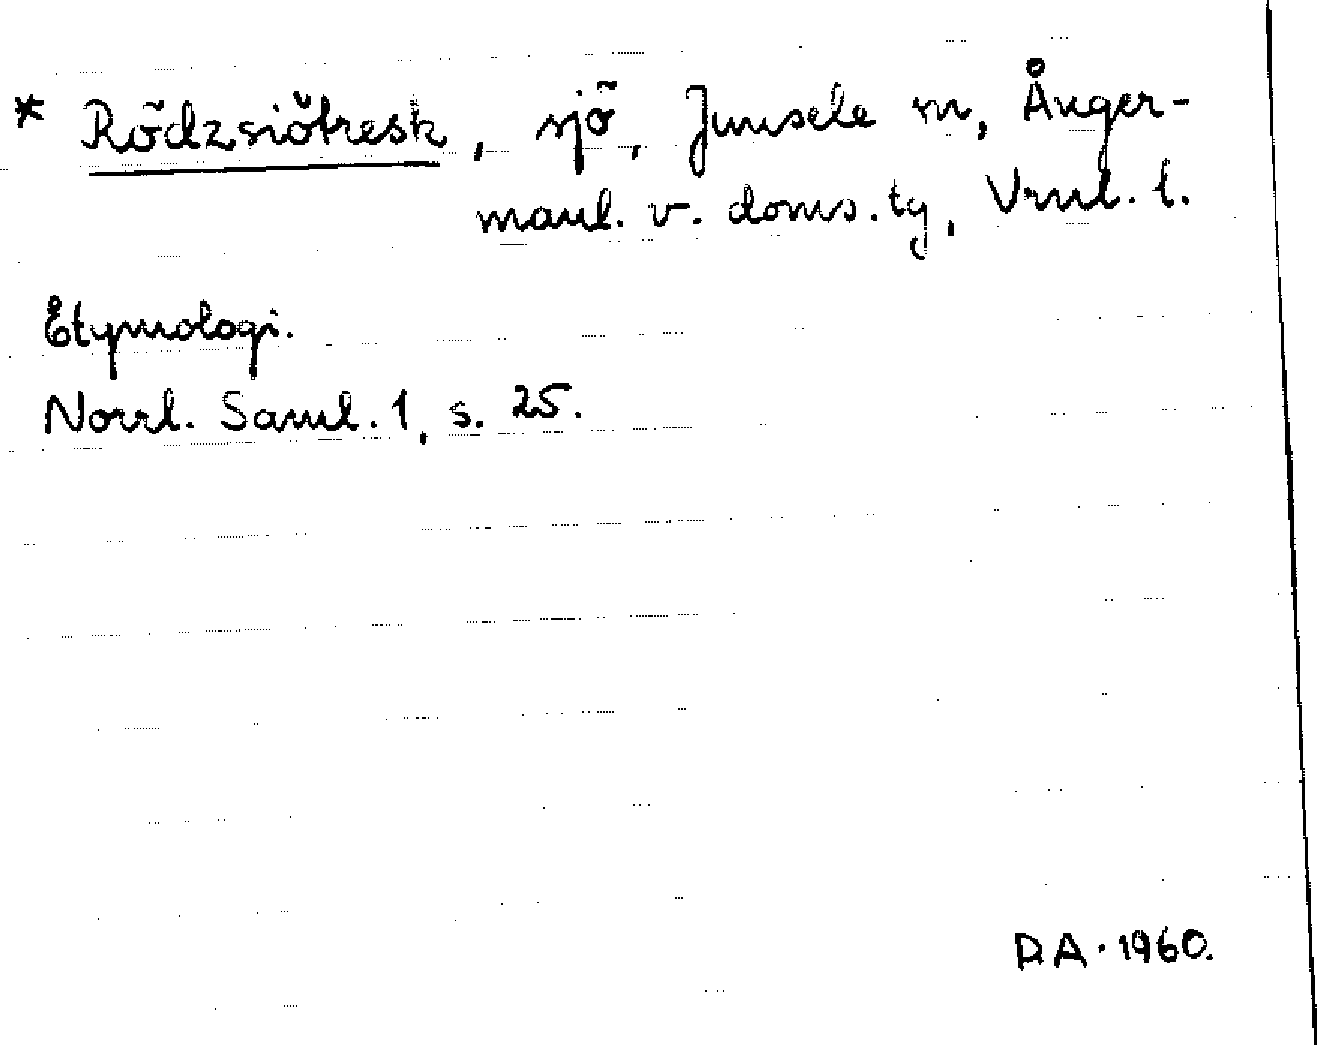 * Rödzsiötresk, sjö, Junsele sn, Ånger-
manl. v. doms. tg, Vrnl. l.
Etymologi.
Norrl. Saml. 1, s. 25.
RA. 1960.